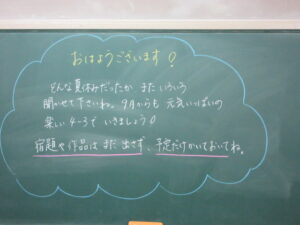 おはようございます！
どんな夏休みだったか、またいろいろ
聞かせて下さいね。9月からも 元気いっぱいの
楽しい 4-3で いきましょう！
宿題や作品は まだ 出さず、予定だけかいておいてね。